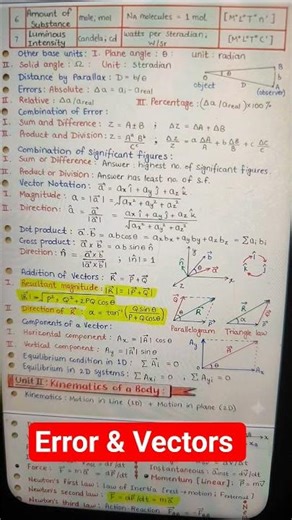 6 Amount of Substance mole, mol Na molecules = 1 mol. [M°L°T°n¹]
7 Luminous Intensity candela, cd watts per steradian, W/sr [M°L°T°C¹]
Other base units: I. Plane angle: θ : unit: radian
II. Solid angle: Ω : Unit: Steradian
Distance by Parallax: D = b/θ
Errors: Absolute: Δa = aᵢ - a real
II. Relative: Δa/a real III. Percentage: (Δa/a real)×100%
B
θ
b
object D observer
A
Combination of Error:
I. Sum and Difference: Z = A±B ; ΔZ = ΔA + ΔB
II. Product and Division:
Combination of significant figures:
I. Sum or Difference: Answer: highest no. of significant figures.
II. Product or Division: Answer has least no. of s.f.
Vector Notation: a⃗ = axî + ayĵ + azk̂
I. Magnitude: a = |a⃗| = √ax² + ay² + az²
II. Direction: â = a⃗/|a⃗| = axî + ayĵ + azk̂ / √ax² + ay² + az²
Dot product: a⃗.b⃗ = ab cosθ = axbx + ayby + azbz = Σaᵢbᵢ
Cross product: a⃗×b⃗ = ab sinθ n̂
Direction: n̂ = a⃗×b⃗/|a⃗×b⃗| ; |n̂| = 1
Addition of Vectors: R⃗ = P⃗ + Q⃗
I. Resultant magnitude: |R⃗| = |P⃗+Q⃗|
|R⃗| = √P² + Q² + 2PQ cosθ
II. Direction of R⃗: α = tan⁻¹(Q sinθ/P+Q cosθ)
Parallelogram Triangle law
Components of a Vector:
I. Horizontal component: Ax = |A⃗| cosθ
II. Vertical component: Ay = |A⃗| sinθ
Equilibrium condition in 1D: ΣA⃗ᵢ = 0
Equilibrium in 2D systems: ΣAxᵢ = 0 , ΣAyᵢ = 0
Unit II: Kinematics of a Body:
Kinematics: Motion in Line (1D) + Motion in plane (2D)
Error & Vectors
Force: Instantaneous:
Momentum [linear]: p⃗ = mv⃗
Newton's first law: Law of Inertia
Newton's second law: F⃗ = dp⃗/dt = ma⃗
Newton's third law: Action-Reaction